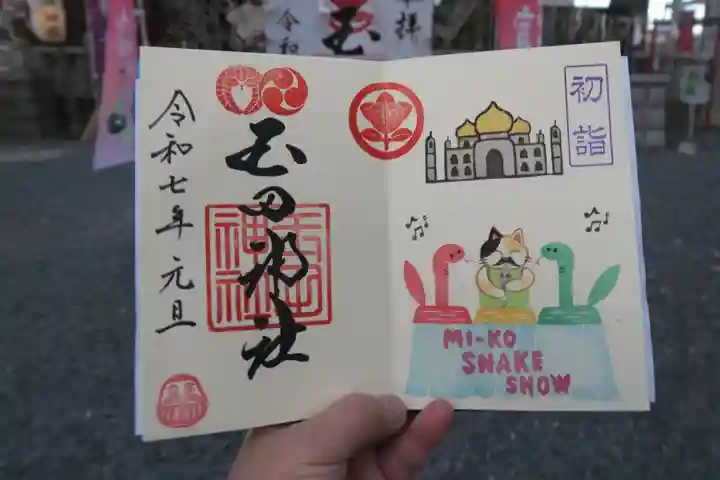 令和七年元旦
玉田神社
初詣
MI-KO
SNAKE
SHOW
令和
玉
拝